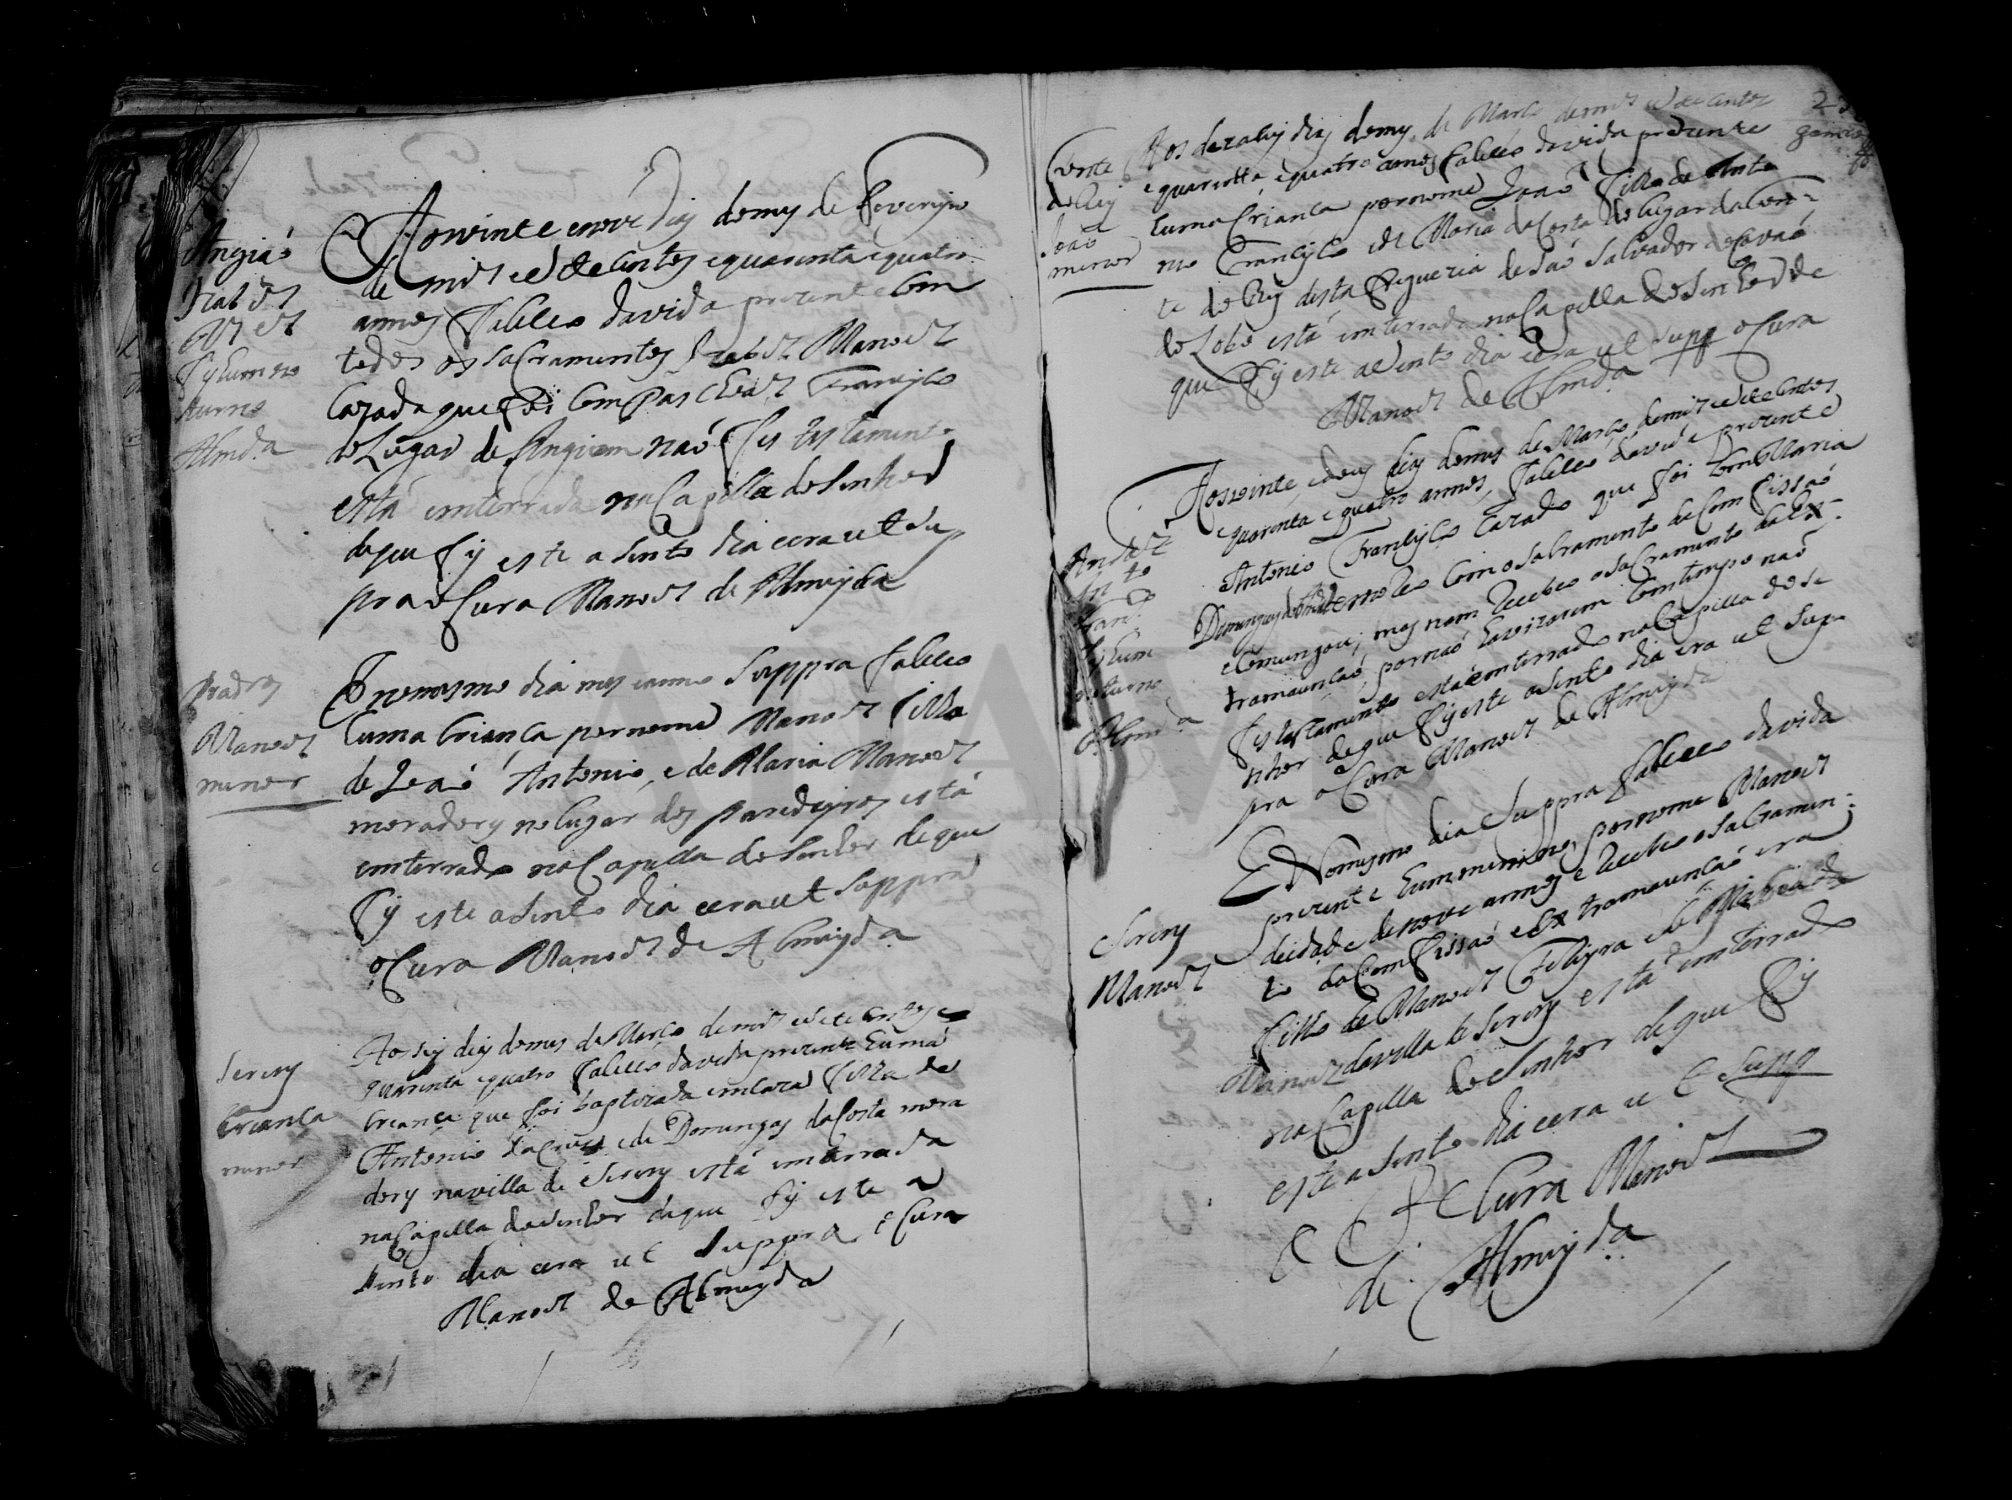 Angiaó
Izabel
Manoel
Fis hum no
turno
Almda
Aos vinte enove dias domes de Feverejro
de mil e setecentos equarenta equatro
annos Faleceo davida prezente com
todos os sacramentos Izabel Manoel
Cazada que foi com Pascheal Francisco
do Lugar de Angiam naó Fes testamento
está emterrada na Capella do Senhor
de que Fis este asento dia eera ut sup
pra o Cura Manoel de Almeyda
Manoel
menor
E no mesmo dia mes eanno Suppra Faleceo
huma Crianca per nome Manoel Filho
de Joaó Antonio, e de Maria Manoel
moradores no lugar dos Paredejros está
emterrado na Capella do Senhor de que
Fis este asento dia eera ut Suppra
o Cura Manoel de Almeyda
Serem
Crianca
menor
Aos seis dias do mes de Março de mil esetecentos e
quarenta equatro Faleceo davida prezente huma
Creanca que foi baptizada em caza Filha de
Antonio da e de Domingas da Costa mora
dores na villa de Serem está emterrada
na Capella do Senhor de que Fis este a
sento dia eera ut Suppra o Cura
Manoel de Almeyda
Fonte
do Rey
Joaó
menor
Aos dezaseis dias do mes de Março demil esetecentos
equarenta equatro annos Faleceo davida prezente
huma Crianca por nome Joaó Filho de Anto
nio Francisco e de Maria da Costa do lugar da Fon=
te do Rey desta Freguezia de Saó Salvador de Covaó
do Lobo está emterrado na Capella do Senhor de
que Fis este asento dia eera ut Supp o Cura
Manoel de Almda
Anto
Fran.co
Fis hum
noturno
Almda
Aos vinte edous dias do mes de Março demil esetecentos
equarenta e quatro annos, Faleceo da vida prezente
Antonio Francisco Cazado que foi Com Maria
Domingues com o sacramento da Comfissaó
ecomungou; mas nam recebeo o sacramento da Ex=
tramauncaó, por naó haverem com tempo naó
Fes testamento está emterrado na Capella do Se
nhor de que Fis este asento dia era ut Sup
pra o Cura Manoel de Almeyda
Serem
Manoel
E No mesmo dia Suppra Faleceo da vida
prezente hum menino, por nome Manoel
de idade de nove annos e recebeo o sacramen=
to da Comfissaó e Extramauncaó era
Filho de Manoel
Manoel da villa de Serem está emterrado
na Capella do Senhor de que Fis
este asento dia eera ut Supp
O Cura Manoel
de Almeyda